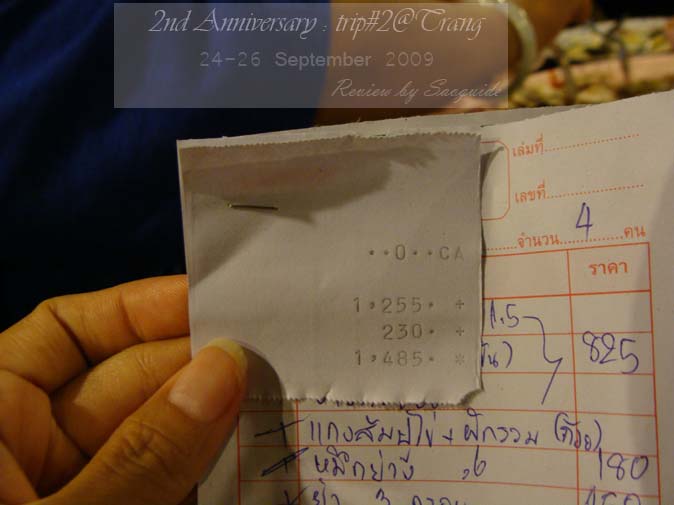 2nd Anniversary : trip#2@Trang
24-26 September 2009
Review by Saoguide
เล่มที่
เลขที่
จำนวน 4 คน
ราคา
••0••CA
1•255• +
230• +
1•485• *
1.5
825
แกงส้มไข่+ผักรวม (ถ้วย)
หมึกย่าง
180